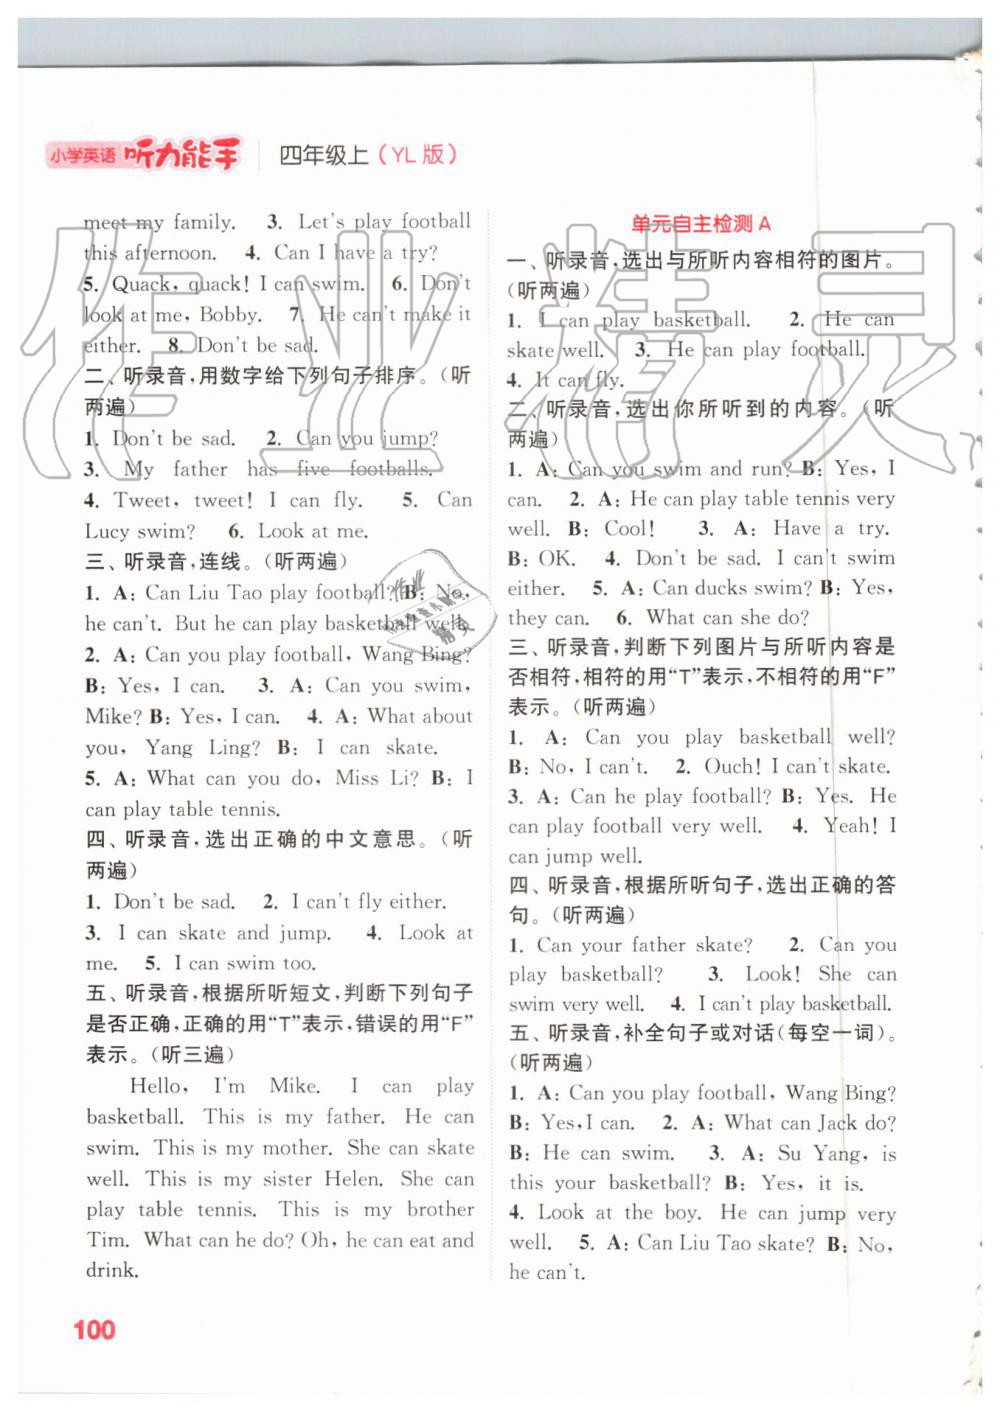 小学英语 听力能手 四年级上（YL版）
meet my family. 3. Let's play football
this afternoon. 4. Can I have a try?
5. Quack, quack! I can swim. 6. Don't
look at me, Bobby. 7. He can't make it
either. 8. Don't be sad.
二、听录音,用数字给下列句子排序。(听
两遍)
1. Don't be sad. 2. Can you jump?
3. My father has five footballs.
4. Tweet, tweet! I can fly. 5. Can
Lucy swim? 6. Look at me.
三、听录音,连线。(听两遍)
1. A: Can Liu Tao play football? B: No,
he can't. But he can play basketball well.
2. A: Can you play football, Wang Bing?
B: Yes, I can. 3. A: Can you swim,
Mike? B: Yes, I can. 4. A: What about
you, Yang Ling? B: I can skate.
5. A: What can you do, Miss Li? B: I
can play table tennis.
四、听录音,选出正确的中文意思。(听
两遍)
1. Don't be sad. 2. I can't fly either.
3. I can skate and jump. 4. Look at
me. 5. I can swim too.
五、听录音,根据所听短文,判断下列句子
是否正确,正确的用“T”表示,错误的用“F”
表示。(听三遍)
Hello, I'm Mike. I can play
basketball. This is my father. He can
swim. This is my mother. She can skate
well. This is my sister Helen. She can
play table tennis. This is my brother
Tim. What can he do? Oh, he can eat and
drink.
100
单元自主检测 A
一、听录音,选出与所听内容相符的图片。
(听两遍)
1. I can play basketball. 2. He can
skate well. 3. He can play football.
4. It can fly.
二、听录音,选出你所听到的内容。(听
两遍)
1. A: Can you swim and run? B: Yes, I
can. 2. A: He can play table tennis very
well. B: Cool! 3. A: Have a try.
B: OK. 4. Don't be sad. I can't swim
either. 5. A: Can ducks swim? B: Yes,
they can. 6. What can she do?
三、听录音,判断下列图片与所听内容是
否相符,相符的用“T”表示,不相符的用“F”
表示。(听两遍)
1. A: Can you play basketball well?
B: No, I can't. 2. Ouch! I can't skate.
3. A: Can he play football? B: Yes. He
can play football very well. 4. Yeah! I
can jump well.
四、听录音,根据所听句子,选出正确的答
句。(听两遍)
1. Can your father skate? 2. Can you
play basketball? 3. Look! She can
swim very well. 4. I can't play basketball.
五、听录音,补全句子或对话(每空一词)。
(听两遍)
1. A: Can you play football, Wang Bing?
B: Yes, I can. 2. A: What can Jack do?
B: He can swim. 3. A: Su Yang, is
this your basketball? B: Yes, it is.
4. Look at the boy. He can jump very
well. 5. A: Can Liu Tao skate? B: No,
he can't.
作业精灵